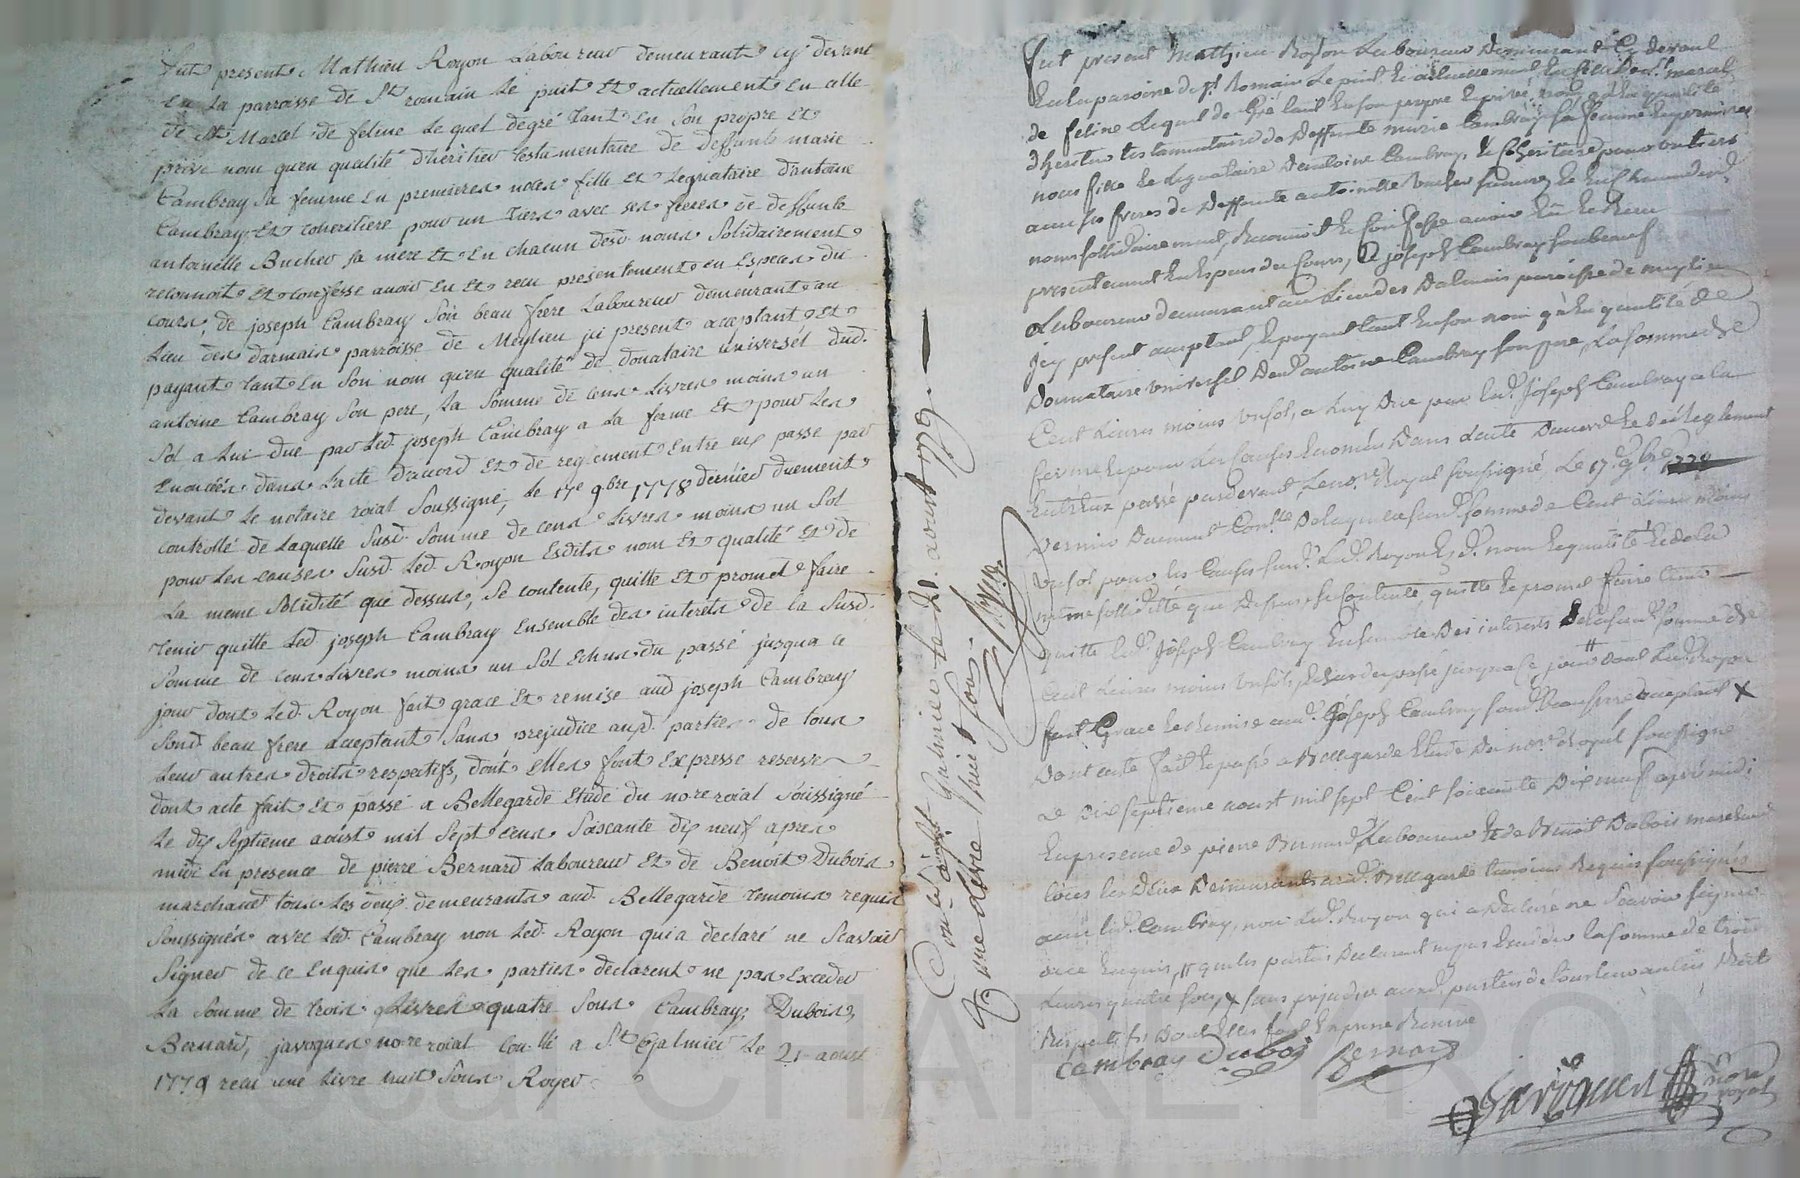 Fut present Mathieu Royon Laboureur demeurant cy devant
en la parroisse de St romain le puit et actuellement en celle
de St Marcel de feline lequel degré tant en son propre et
privé nom qu'en qualité d'heritier testamentaire de deffunte marie
Cambray sa femme en premieres noces fille et legataire d'antoine
Cambray et coheritiere pour un tiers avec ses freres de deffunte
antoinette Bucher sa mere et en chacun desd. noms solidairement
reconnoit et confesse avoir eu et recu presentement en especes du
cours, de joseph Cambray son beau frere Laboureur demeurant au
lieu des darmais parroisse de Meylieu ici present acceptant et
payant tant en son nom qu'en qualité de donataire universel dud.
antoine Cambray son pere, la somme de cens livres moins un
sol a lui due par led. joseph Cambray a la forme et pour les
enoncées dans l'acte d'accord et de reglement entre eux passé par
devant le notaire roial soussigné, le 17e 9bre 1778 dernier duement
controllé de laquelle susd. somme de cens livres moins un sol
pour les causes susd. led. Royon esdits nom et qualité et de
la meme solidité que dessus, se contente, quitte et promet faire
tenir quitte led. joseph Cambray ensemble des interets de la susd.
somme de cens livres moins un sol echus du passé jusqua ce
jour dont led. Royon fait grace et remise aud. joseph Cambray
sond. beau frere acceptant sans prejudice ausd. parties de tous
leur autres droits respectifs, dont elles font expresse reserve
dont acte fait et passé a Bellegarde etude du no.re roial soussigné
le dix septieme aoust mil sept cens soixante dix neuf apres
midi en presence de pierre Bernard Laboureur et de Benoit Dubois
marchand tous les deux demeurants aud. Bellegarde temoins requis
soussignés avec led. Cambray non led. Royon qui a declaré ne scavoir
signer de ce enquis que les parties declarent ne pas exceder
la somme de trois livres quatre sous Cambray, Dubois,
Bernard, javogues no.re roial con.llé a St Galmier le 21 aoust
1779 recu une livre huit sous Royer
Con.llé à St Galmier le 21. aoust 1779.
Reçu une livre huit sous.
Royer
Fut present Mathieu Royon Laboureur Demeurant Cy devant
En la paroisse de St Romain Le puit Et actuellement En celle de St marcel
de feline Lequel de Gré tant En son propre Et privé nom qu'En qualité
d'heritier testamentaire de Deffunte marie Cambray sa femme En premieres
noces fille Et Legataire d'antoine Cambray, Et Coheritiere pour un tiers
avec ses freres de Deffunte antoinette Bucher sa mere, Et En Chacun desd.
noms sollidairement, Reconnoit Et Confesse avoir Eu Et Recu
presentement En Especes du Cours, de joseph Cambray son beau frere
Laboureur demeurant au Lieu des Dalmais paroisse de meylieu
jcy present acceptant, Et payant tant En son nom qu'En qualité de
Donnataire universel dud. antoine Cambray son pere, La somme de
Cent Livres moins un sol, a Luy Due par Led. Joseph Cambray a la
forme Et pour Les Causes Enoncées Dans L'acte D'accord Et de Reglement
Entr'Eux passé pardevant Le no.re Royal soussigné, Le 17e 9bre 1778
Dernier Duement Con.llé De laquelle susd. somme de Cent Livres moins
un sol pour les Causes susd. Led. Royon Esd. nom Et qualité Et de La
même sollidité que Dessus, se Contente, quitte Et promet faire tenir
quitte Led. Joseph Cambray Ensemble Des interets De la susd. somme de
Cent Livres moins un sol, Echus du passé jusqu'a ce jour Dont Led. Royon
fait Grace Et Remise aud. Joseph Cambray sond. Beau frere acceptant X
Dont acte fait Et passé a Bellegarde Etude Du no.re Royal soussigné
Le Dix septieme aoust mil sept Cent soixante Dix neuf après midi
En presence de pierre Bernard Laboureur Et de Benoit Dubois marchand
tous les Deux Demeurants aud. Bellegarde temoins Requis soussignés
avec Led. Cambray, non Led. Royon qui a Declaré ne sçavoir signer
de ce Enquis, # que les parties Declarent ne pas Exceder la somme de trois
Livres quatre sous, X sans prejudice ausd. parties de tous Leurs autres Droits
Respectifs Dont Elles font Expresse Reserve
Cambray Dubois Bernard
Javogues
no.re royal
CHAREYRON